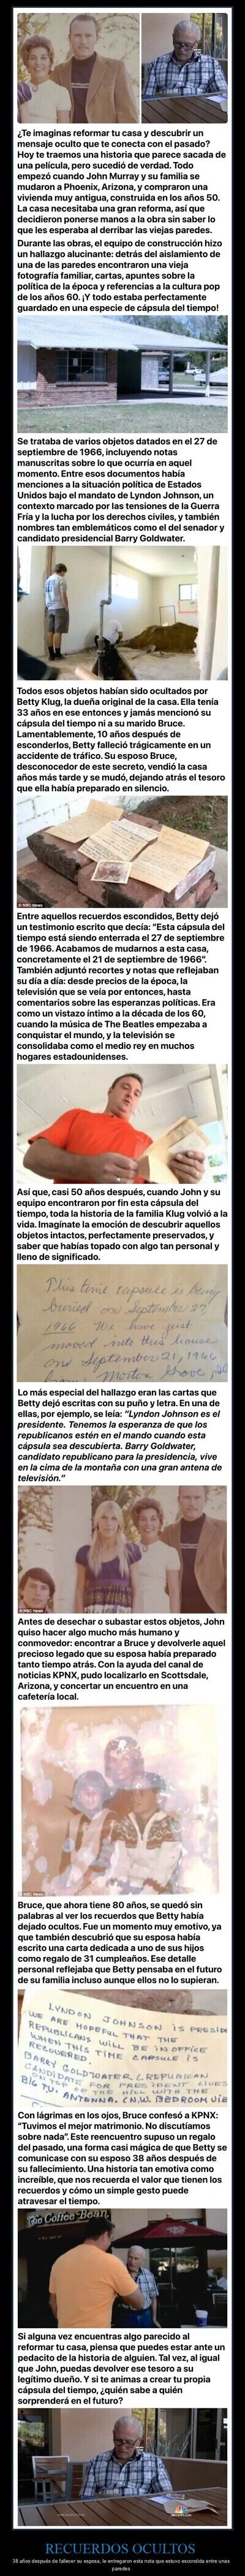 ¿Te imaginas reformar tu casa y descubrir un
mensaje oculto que te conecta con el pasado?
Hoy te traemos una historia que parece sacada de
una película, pero sucedió de verdad. Todo
empezó cuando John Murray y su familia se
mudaron a Phoenix, Arizona, y compraron una
vivienda muy antigua, construida en los años 50.
La casa necesitaba una gran reforma, así que
decidieron ponerse manos a la obra sin saber lo
que les esperaba al derribar las viejas paredes.
Durante las obras, el equipo de construcción hizo
un hallazgo alucinante: detrás del aislamiento de
una de las paredes encontraron una vieja
fotografía familiar, cartas, apuntes sobre la
política de la época y referencias a la cultura pop
de los años 60. ¡Y todo estaba perfectamente
guardado en una especie de cápsula del tiempo!
Se trataba de varios objetos datados en el 27 de
septiembre de 1966, incluyendo notas
manuscritas sobre lo que ocurría en aquel
momento. Entre esos documentos había
menciones a la situación política de Estados
Unidos bajo el mandato de Lyndon Johnson, un
contexto marcado por las tensiones de la Guerra
Fría y la lucha por los derechos civiles, y también
nombres tan emblemáticos como el del senador y
candidato presidencial Barry Goldwater.
Todos esos objetos habían sido ocultados por
Betty Klug, la dueña original de la casa. Ella tenía
33 años en ese entonces y jamás mencionó su
cápsula del tiempo ni a su marido Bruce.
Lamentablemente, 10 años después de
esconderlos, Betty falleció trágicamente en un
accidente de tráfico. Su esposo Bruce,
desconocedor de este secreto, vendió la casa
años más tarde y se mudó, dejando atrás el tesoro
que ella había preparado en silencio.
© NBC News
Entre aquellos recuerdos escondidos, Betty dejó
un testimonio escrito que decía: “Esta cápsula del
tiempo está siendo enterrada el 27 de septiembre
de 1966. Acabamos de mudarnos a esta casa,
concretamente el 21 de septiembre de 1966”.
También adjuntó recortes y notas que reflejaban
su día a día: desde precios de la época, la
televisión que se veía por entonces, hasta
comentarios sobre las esperanzas políticas. Era
como un vistazo íntimo a la década de los 60,
cuando la música de The Beatles empezaba a
conquistar el mundo, y la televisión se
consolidaba como el medio rey en muchos
hogares estadounidenses.
Así que, casi 50 años después, cuando John y su
equipo encontraron por fin esta cápsula del
tiempo, toda la historia de la familia Klug volvió a la
vida. Imagínate la emoción de descubrir aquellos
objetos intactos, perfectamente preservados, y
saber que habías topado con algo tan personal y
lleno de significado.
This time capsule is being
buried on September 27,
1966 We have just
moved into this house
on September 21, 1966
from Morton Grove, Ill
Lo más especial del hallazgo eran las cartas que
Betty dejó escritas con su puño y letra. En una de
ellas, por ejemplo, se leía: “Lyndon Johnson es el
presidente. Tenemos la esperanza de que los
republicanos estén en el mando cuando esta
cápsula sea descubierta. Barry Goldwater,
candidato republicano para la presidencia, vive
en la cima de la montaña con una gran antena de
televisión.”
© NBC News
Antes de desechar o subastar estos objetos, John
quiso hacer algo mucho más humano y
conmovedor: encontrar a Bruce y devolverle aquel
precioso legado que su esposa había preparado
tanto tiempo atrás. Con la ayuda del canal de
noticias KPNX, pudo localizarlo en Scottsdale,
Arizona, y concertar un encuentro en una
cafetería local.
© NBC News
Bruce, que ahora tiene 80 años, se quedó sin
palabras al ver los recuerdos que Betty había
dejado ocultos. Fue un momento muy emotivo, ya
que también descubrió que su esposa había
escrito una carta dedicada a uno de sus hijos
como regalo de 31 cumpleaños. Ese detalle
personal reflejaba que Betty pensaba en el futuro
de su familia incluso aunque ellos no lo supieran.
LYNDON JOHNSON IS PRESID
WE ARE HOPEFUL THAT THE
REPUBLICANS WILL BE IN OFFICE
WHEN THIS TIME CAPSULE IS
RECOVERED.
BARRY GOLDWATER (REPUBLICAN
CANDIDATE FOR PRESIDENT LIVES
HILL WITH THE
BIG TV. ANTENNA. (N.W. BEDROOM VIE
Con lágrimas en los ojos, Bruce confesó a KPNX:
“Tuvimos el mejor matrimonio. No discutíamos
sobre nada”. Este reencuentro supuso un regalo
del pasado, una forma casi mágica de que Betty se
comunicase con su esposo 38 años después de
su fallecimiento. Una historia tan emotiva como
increíble, que nos recuerda el valor que tienen los
recuerdos y cómo un simple gesto puede
atravesar el tiempo.
The Coffee Bean
Si alguna vez encuentras algo parecido al
reformar tu casa, piensa que puedes estar ante un
pedacito de la historia de alguien. Tal vez, al igual
que John, puedas devolver ese tesoro a su
legítimo dueño. Y si te animas a crear tu propia
cápsula del tiempo, ¿quién sabe a quién
sorprenderá en el futuro?
RECUERDOS OCULTOS
38 años después de fallecer su esposa, le entregaron esta nota que estuvo escondida entre unas
paredes